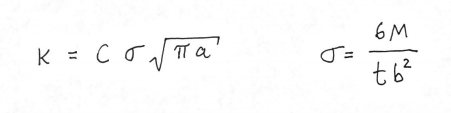 K = C σ √(π a)    σ = 6M / (t b²)